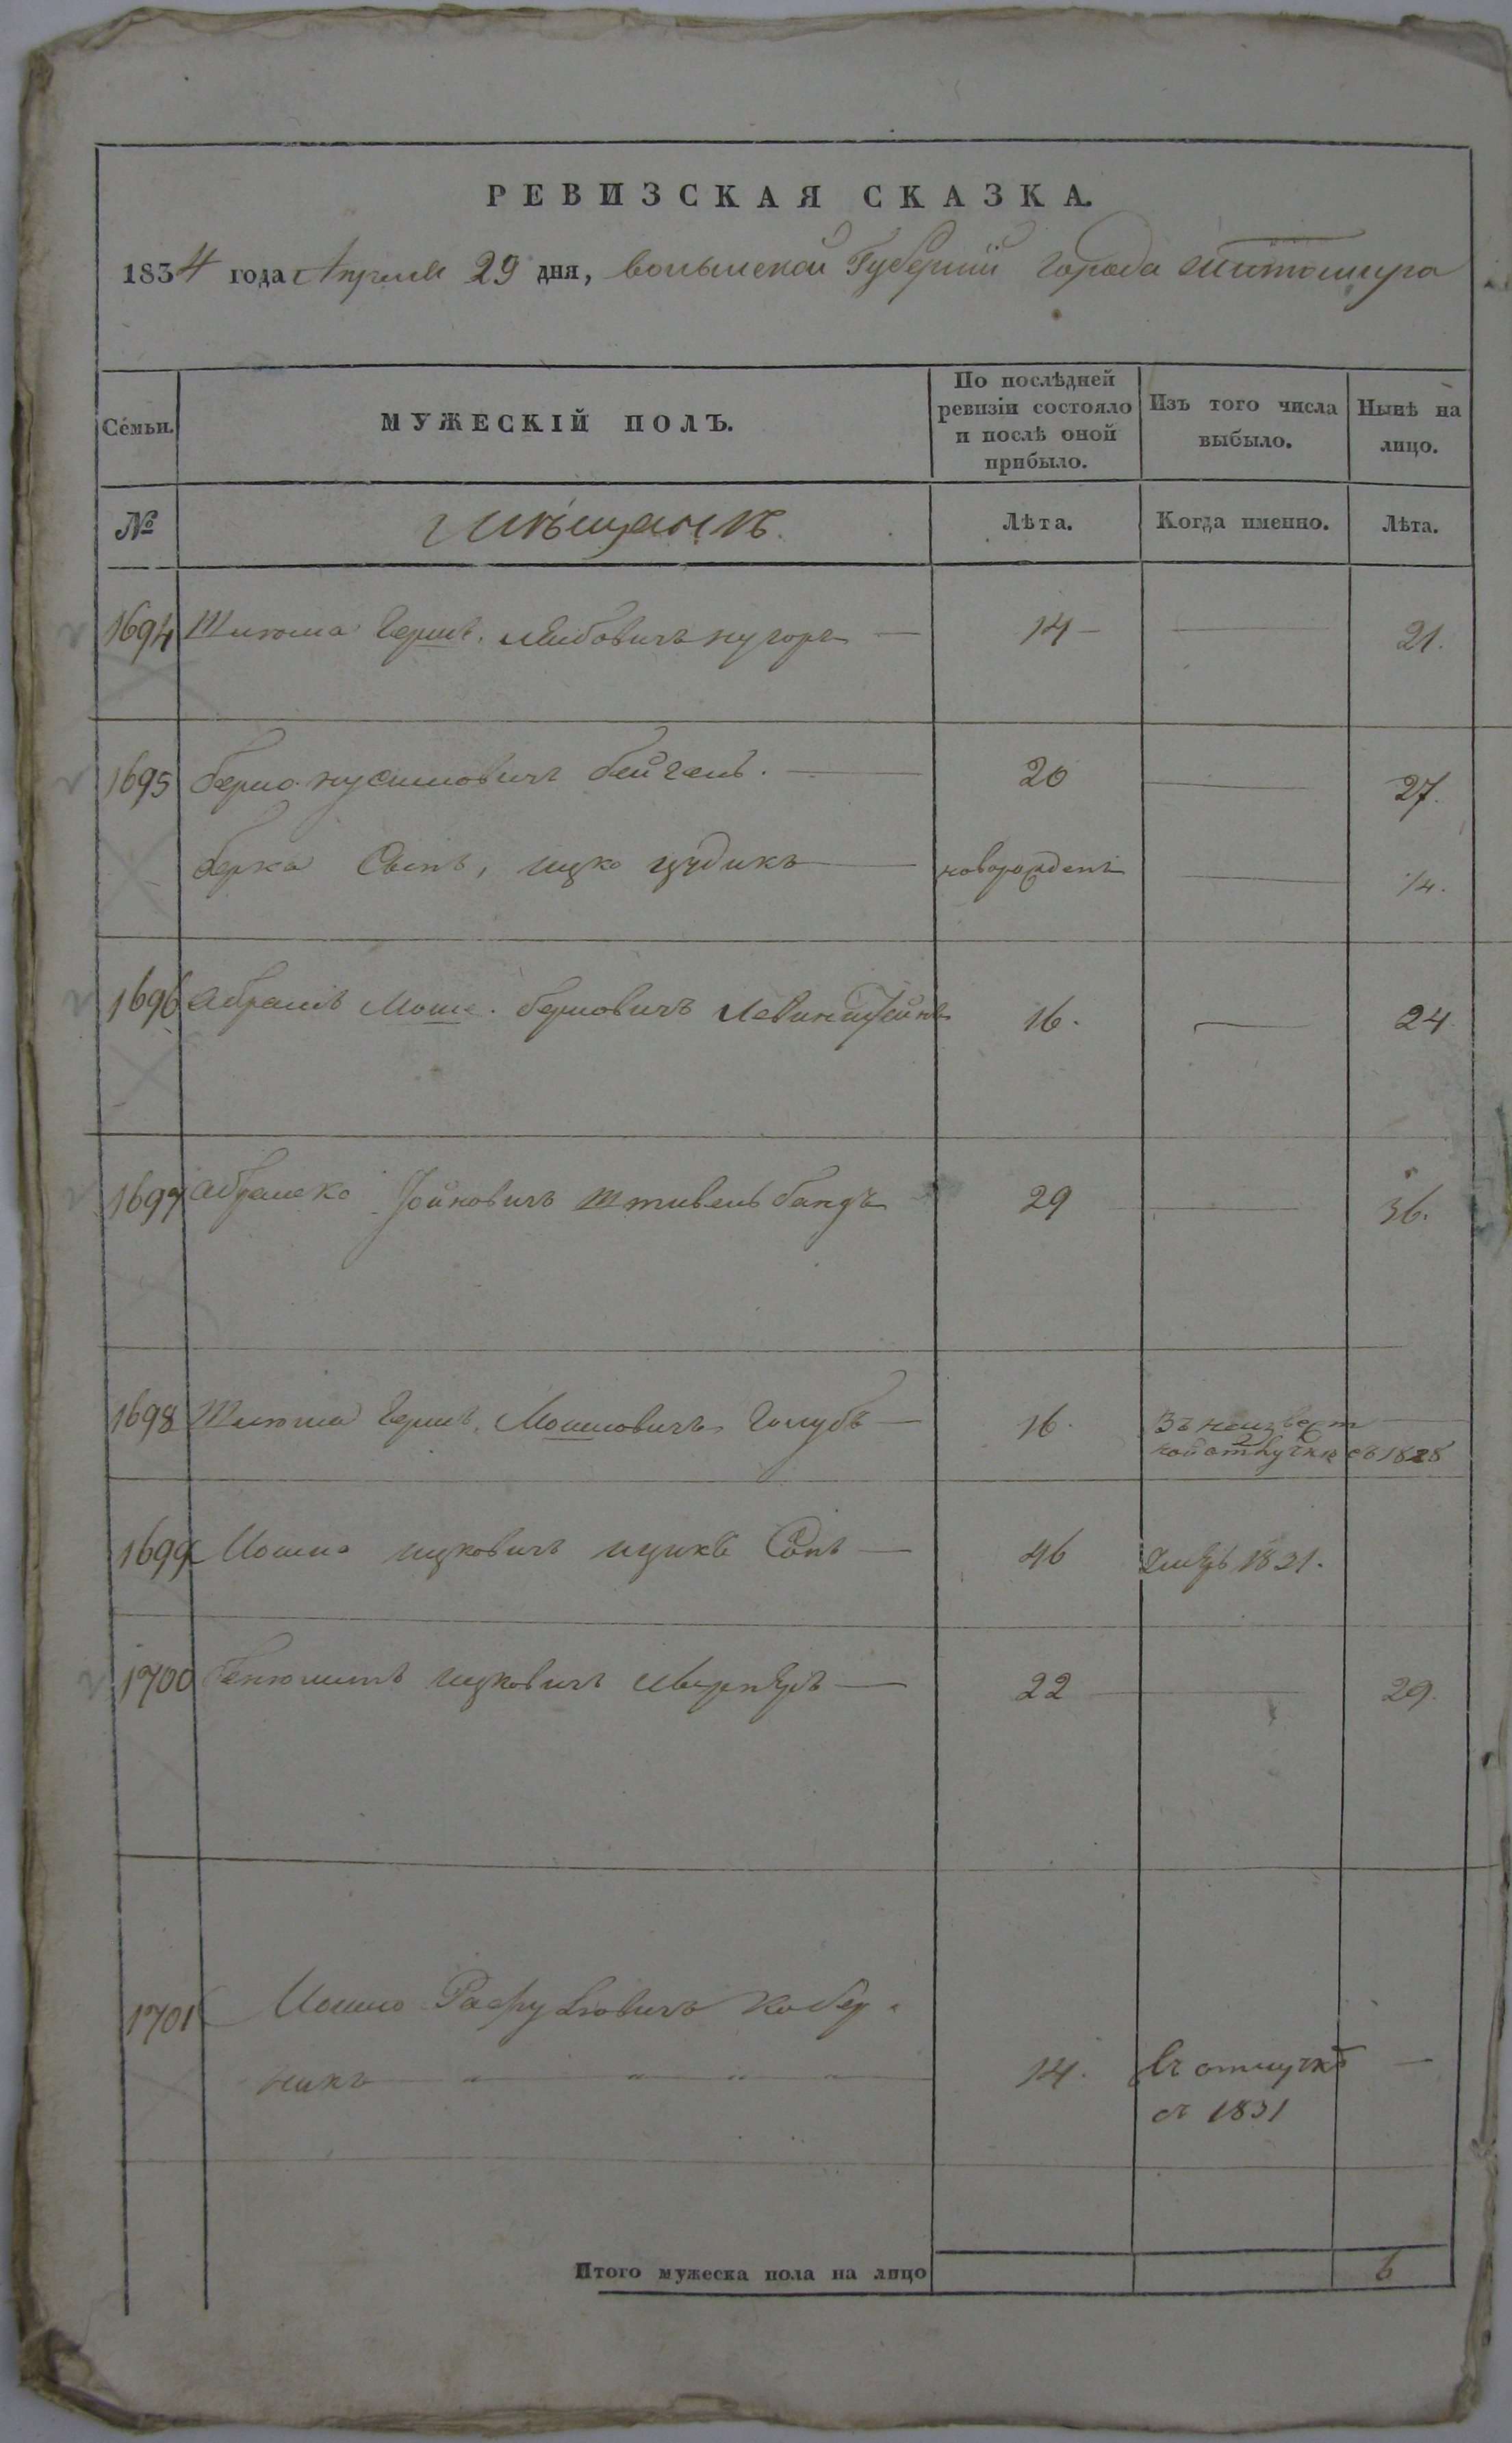 РЕВИЗСКАЯ СКАЗКА.
1834 года Апреля 29 дня, волынской Губернiи города Житомира
Семьи.
МУЖЕСКIЙ ПОЛЪ.
По послѣдней ревизiи состояло и послѣ оной прибыло.
Изъ того числа выбыло.
Нынѣ на лицо.
№
Мѣщанѣ.
Лѣта.
Когда именно.
Лѣта.
1694 Шлюма Герш. Лейбовичъ 14 — — 21.
1695 Берко Нусимовичъ — 20 — 27.
Берка Сынъ, ицко — новорожденъ — 1/4.
1696 Абрамъ Мош. Берковичъ Левинштейнъ 16. — 24
1697 Абрамко 29 — 36.
1698 Шлюма Герш. Мошковичъ Голубъ — 16. Въ неизвест —
ной отлучке съ 1828
1699 Мошко ицковичъ — 46 Умеръ 1831.
1700 Бенюминъ ицковичъ — 22 — 29.
1701 Мошко Рафуловичъ Кобер-
никъ — " — " — " — " — 14. Въ отлучкѣ —
съ 1831
Итого мужеска пола на лицо 6